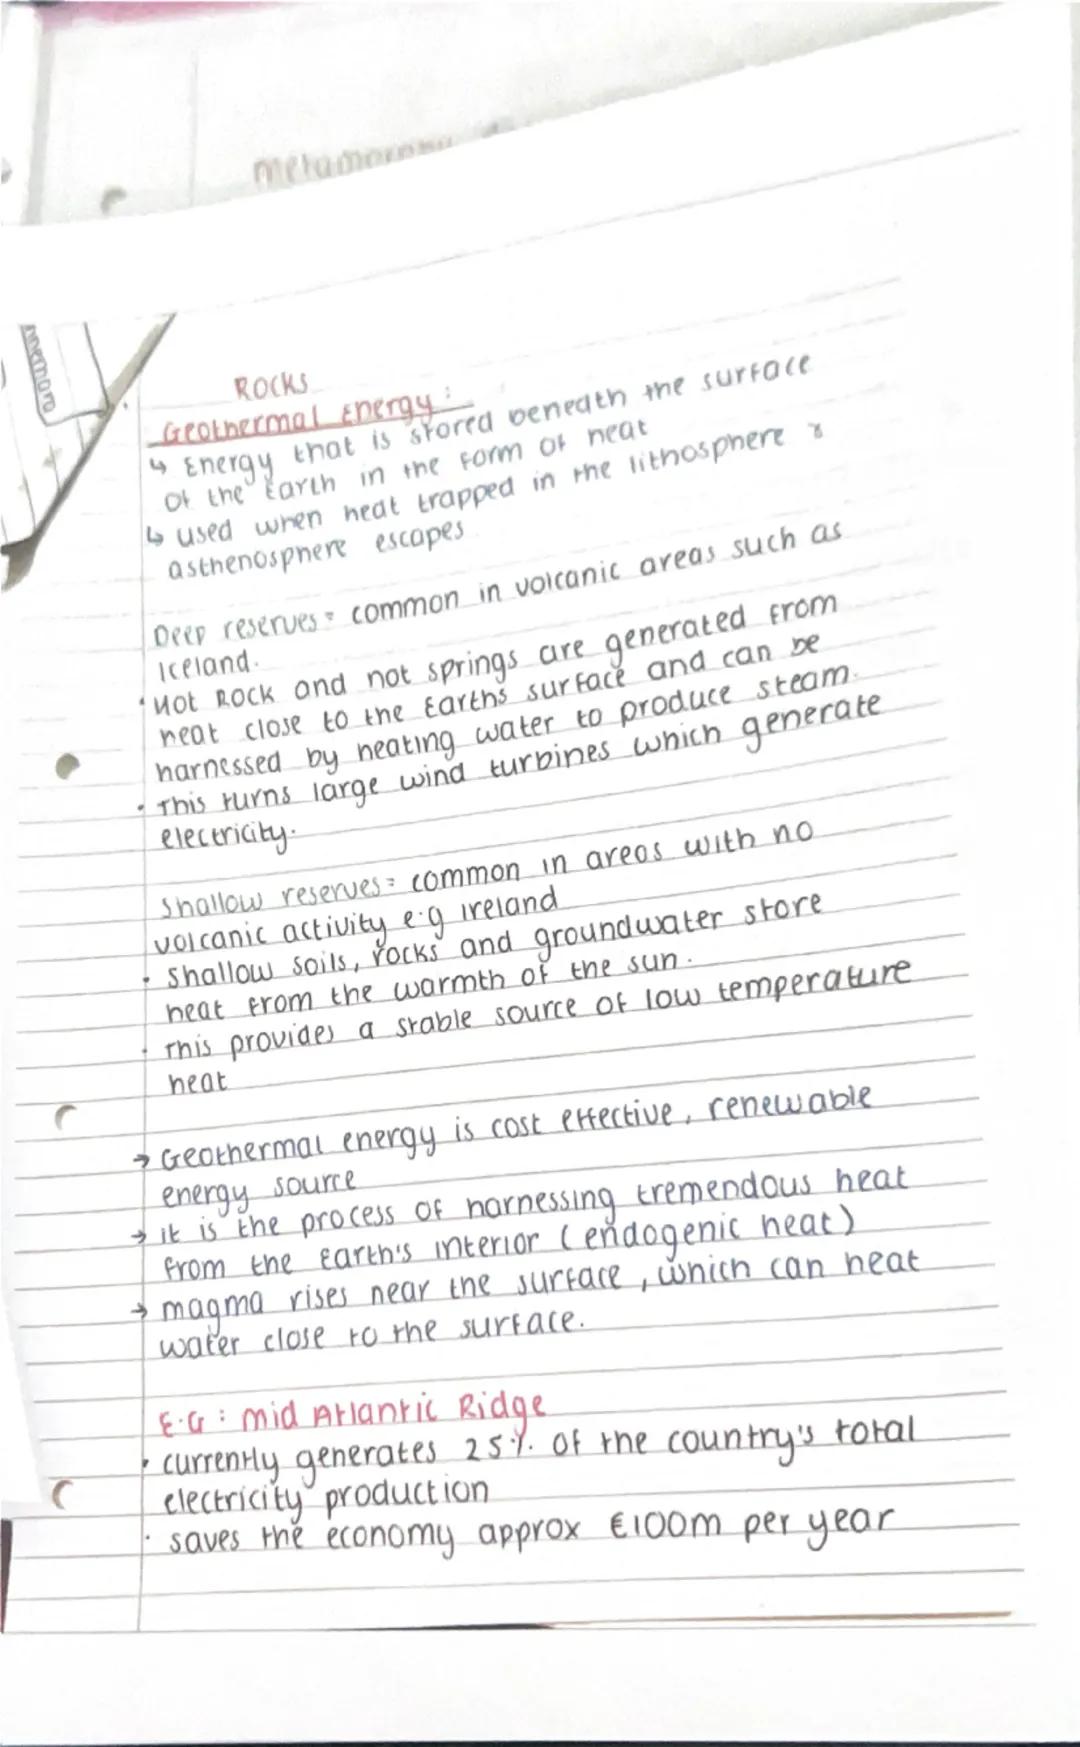 Rocks
Geothermal Energy :
↳ Energy that is stored beneath the surface
of the Earth in the form of heat
↳ used when heat trapped in the lithosphere &
asthenosphere escapes
Deep reserves = common in volcanic areas such as
Iceland.
• Hot Rock and hot springs are generated from
heat close to the Earths surface and can be
harnessed by heating water to produce steam.
• This turns large wind turbines which generate
electricity.
Shallow reserves = common in areas with no
volcanic activity e.g Ireland
• Shallow soils, rocks and groundwater store
heat from the warmth of the sun.
• This provides a stable source of low temperature
heat
→ Geothermal energy is cost effective, renewable
energy source
→ it is the process of harnessing tremendous heat
from the Earth's interior (endogenic heat)
→ magma rises near the surface, which can heat
water close to the surface.
E.G : mid Atlantic Ridge
• currently generates 25% of the country's total
electricity production
• saves the economy approx €100m per year